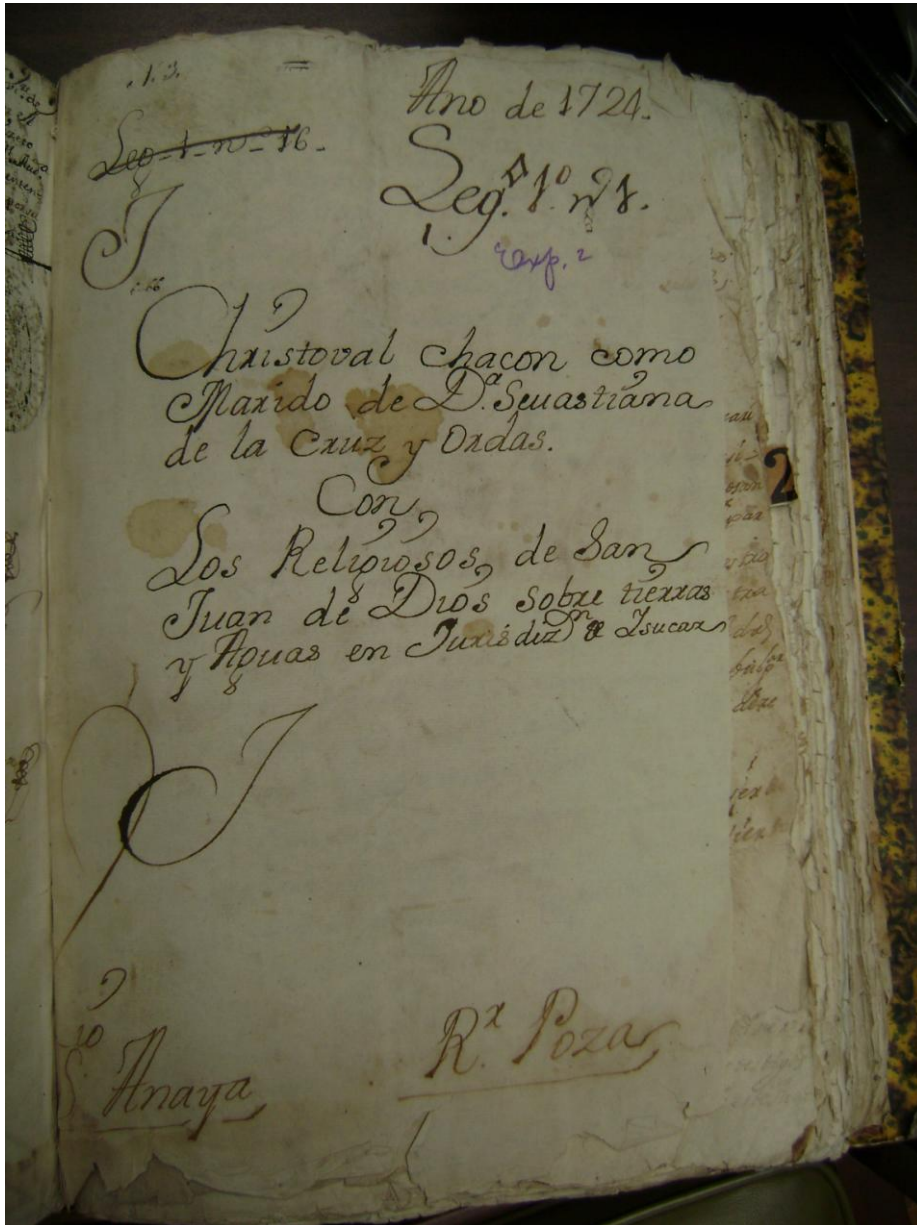 Año de 1724.
Leg. 1. nº 16.
Leg.º 1.º nº 1.
1.
Exp. 2
Christoval chacon como
Marido de D.ª Sevastiana
de la Cruz y Ordas.
Con
Los Religiosos, de San
Juan de Dios sobre tierras
y Aguas en Jurisdizⁿ de Isucar
2
Anaya
R.ˣ Poza